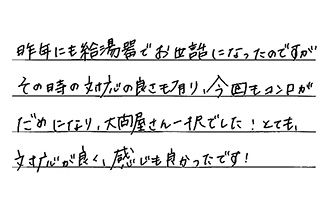 昨年にも給湯器でお世話になったのですが
その時の対応の良さも有り、今回もコンロが
だめになり、大問屋さん一択でした！とても、
対応が良く、感じも良かったです！